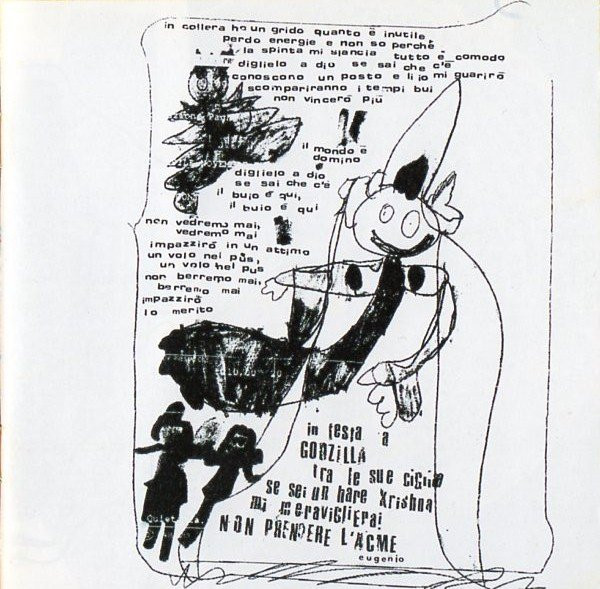 in collera ho un grido quanto è inutile
perdo energie e non so perchè
la spinta mi slancia tutto è comodo
diglielo a dio se sai che c'è
conoscono un posto e li io mi guarirò
scompariranno i tempi bui
non vincerò più
il mondo è
domino
diglielo a dio
se sai che c'è
il buio è qui,
il buio è qui
non vedremo mai,
vedremo mai
impazzirò in un attimo
un volo nel pus,
un volo nel pus
non berremo mai,
berremo mai
impazzirò
lo merito
in testa a
GODZILLA
tra le sue ciglia
se sei un hare krishna
mi meraviglierai
NON PRENDERE L'ACME
eugenio
Quiet